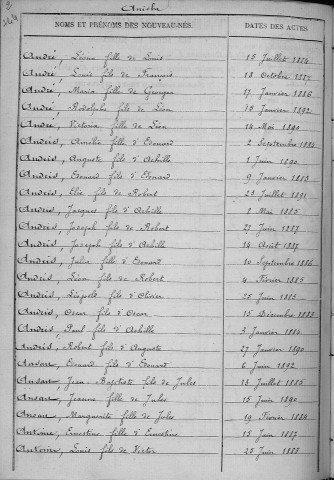 Aniche
NOMS ET PRÉNOMS DES NOUVEAU-NÉS. DATES DES ACTES
André, Léona fille de Louis 15 Juillet 1884
André, Louis fils de François 18 Octobre 1887
André, Maria fille de Georges 17 Janvier 1886
André, Rodolphe fils de Léon 15 Janvier 1892
André, Victoria fille de Léon 14 Mai 1890
Andris, Amélie fille d'Edouard 2 Septembre 1884
Andris, Auguste fils d'Achille 1 Juin 1890
Andris, Edouard fils d'Edouard 9 Janvier 1883
Andris, Elie fils de Robert 23 Juillet 1891
Andris, Jacques fils d'Achille 8 Mai 1885
Andris, Joseph fils de Robert 27 Juin 1887
Andris, Joseph fils d'Achille 14 Août 1887
Andris, Julia fille d'Edouard 10 Septembre 1886
Andris, Léon fils de Robert 4 Février 1885
Andris, Léopold fils d'Olivier 25 Juin 1883
Andris, Oscar fils d'Oscar 15 Décembre 1883
Andris, Paul fils d'Achille 3 Janvier 1884
Andris, Robert fils d'Auguste 27 Janvier 1890
Ansar, Edouard fils d'Edouard 6 Juin 1892
Ansar, Jean Baptiste fils de Jules 13 Juillet 1885
Ansar, Jeanne fille de Jules 15 Juin 1890
Ansar, Marguerite fille de Jules 19 Février 1884
Antoine, Ernestine fille d'Ernestine 15 Juin 1887
Antoine, Louis fils de Victor 25 Juin 1888